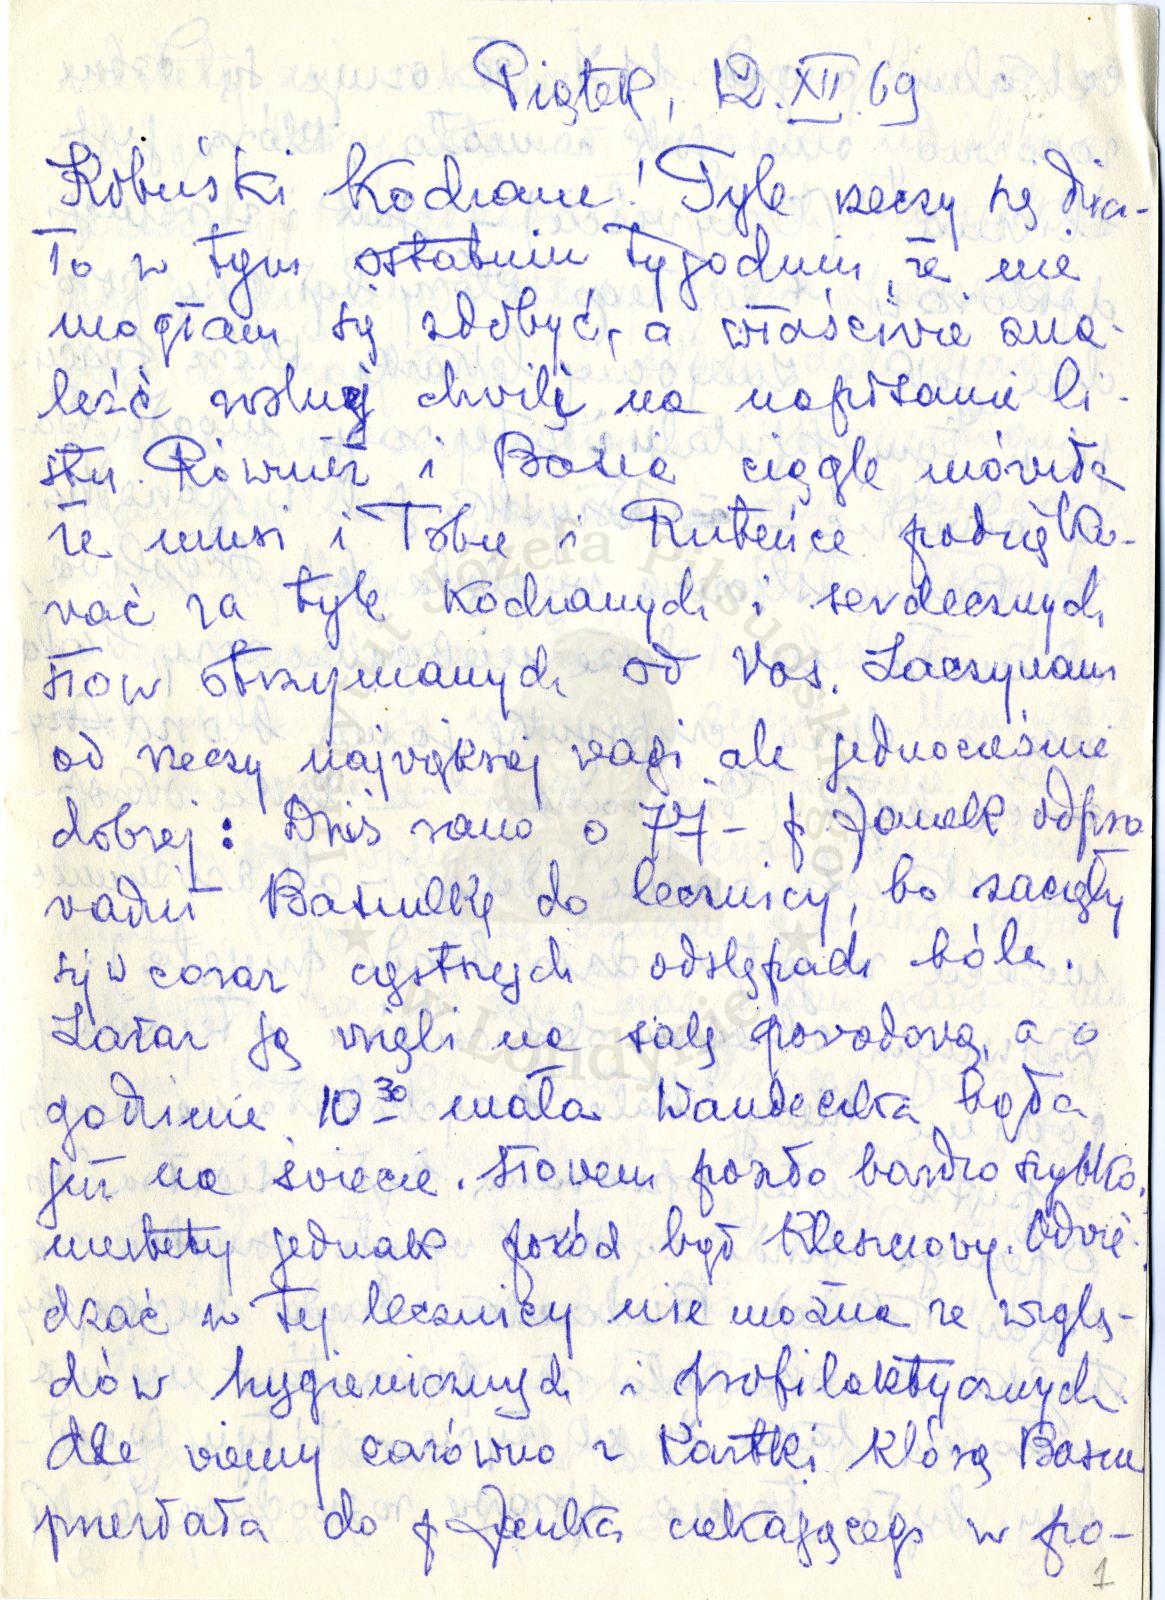 Piątek, 12.XII.69
Robuśki Kochane! Tyle rzeczy się dzia-
ło w tym ostatnim tygodniu, że nie
mogłam się zdobyć, a właściwie zna-
leźć wolnej chwili na napisanie li-
stu. Również i Basia ciągle mówiła
że musi i Tobie i Ruteńce podzięko-
wać za tyle kochanych i serdecznych
słow otrzymanych od Was. Zaczynam
od rzeczy największej wagi ale jednocześnie
dobrej: Dziś rano o 7ej - p Janek odpro
wadził Basiulkę do lecznicy, bo zaczęły
się w coraz częstszych odstępach bóle.
Zaraz ją wzięli na salę porodową, a o
godzinie 10 30 mała Wandeczka była
już na świecie. Słowem poszło bardzo szybko,
niestety jednak poród był kleszczowy. Odwie-
dzać w tej lecznicy nie można ze wzglę-
dów hygienicznych i profilaktycznych.
Ale wiemy zarówno z kartki którą Basia
przesłała do p Janka czekającego w po-
1
Józefa Piłsudskiego
w Londynie